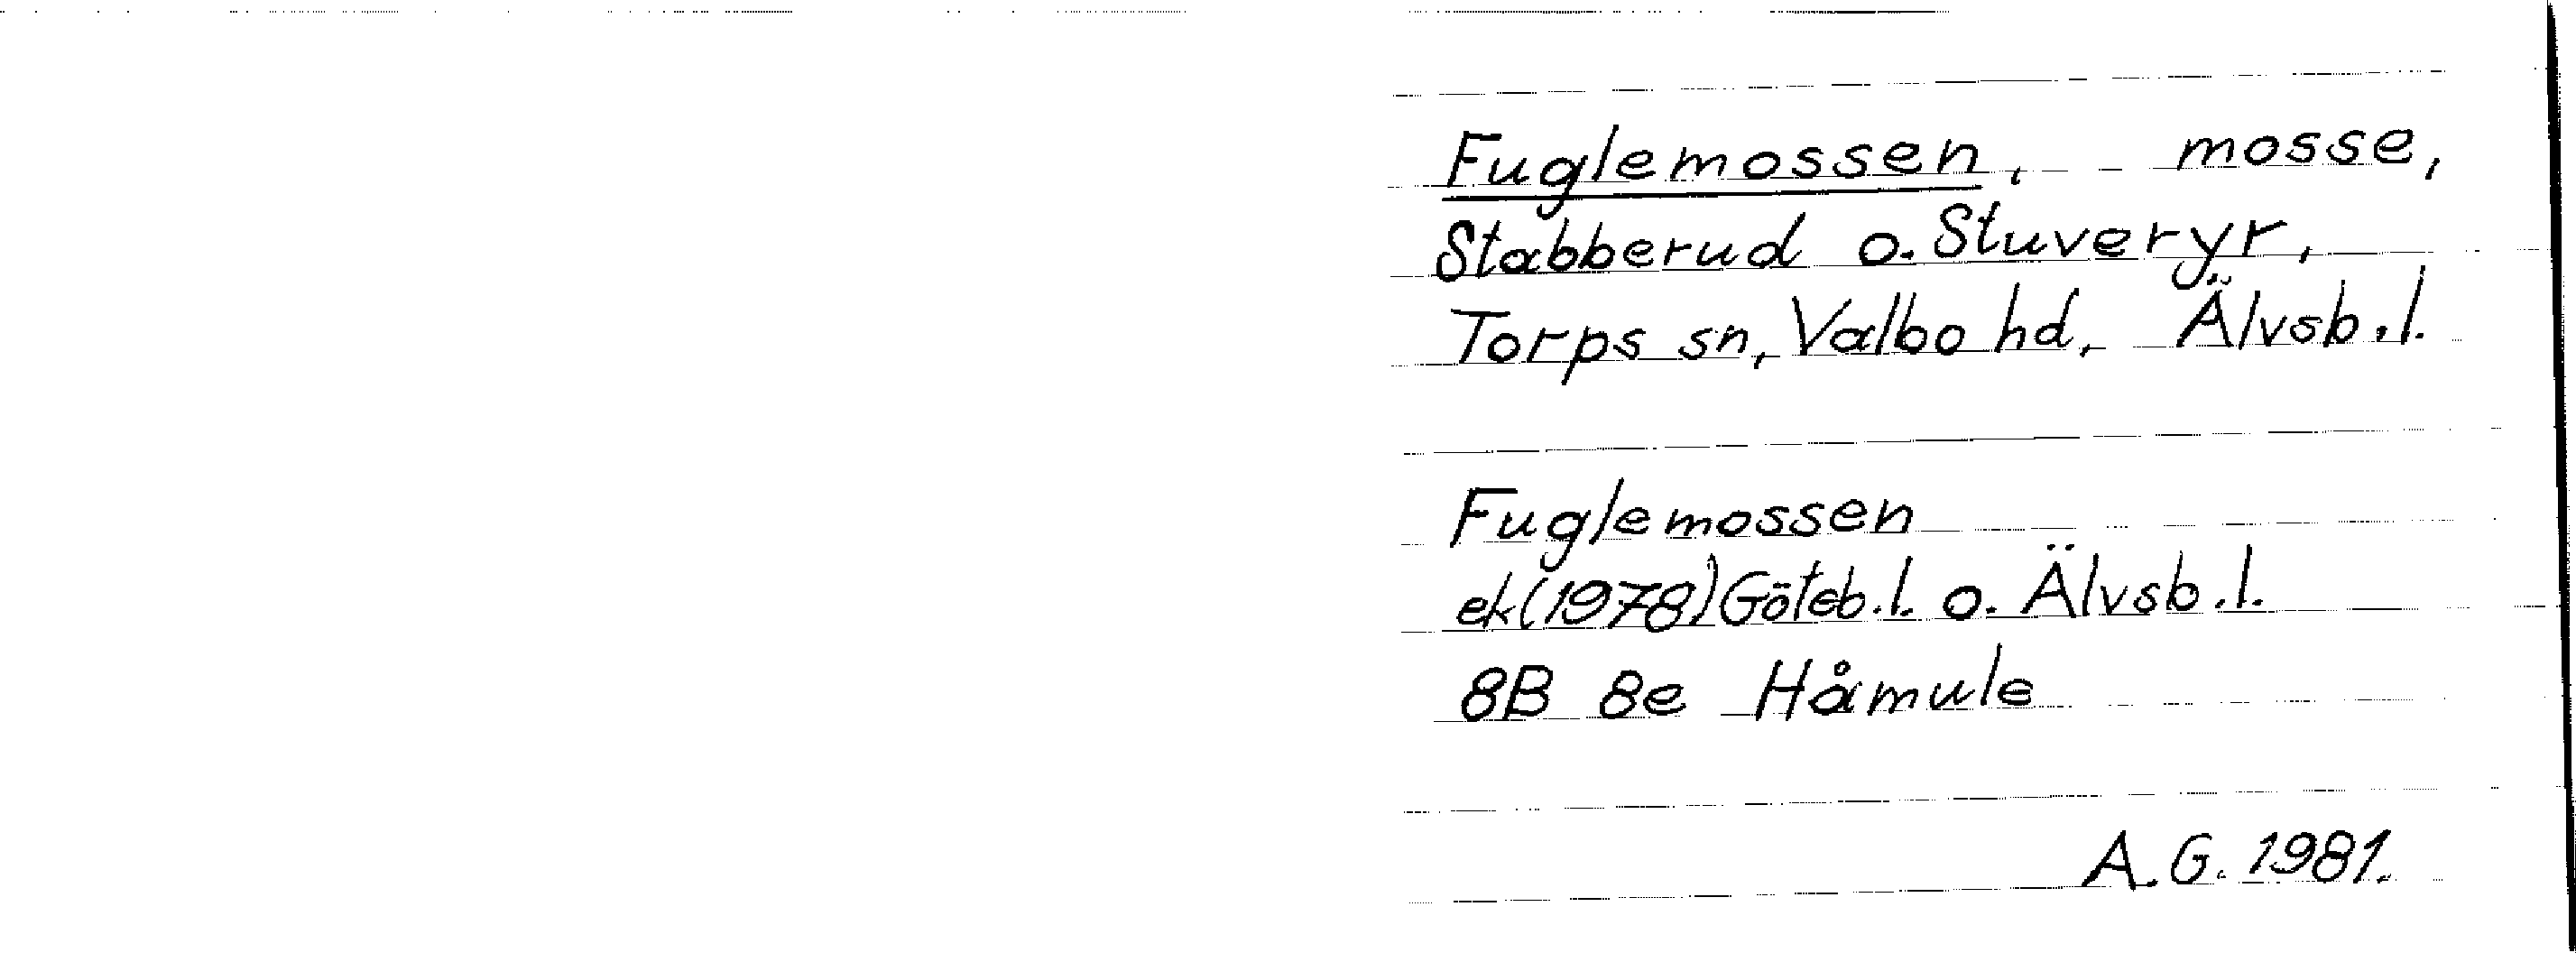 Fuglemossen, mosse,
Stabberud o. Stuveryr,
Torps sn, Valbo hd, Älvsb.l.
Fuglemossen
ek(1978) Göteb.l. o. Älvsb.l.
8B 8e Håmule
A.G. 1981.